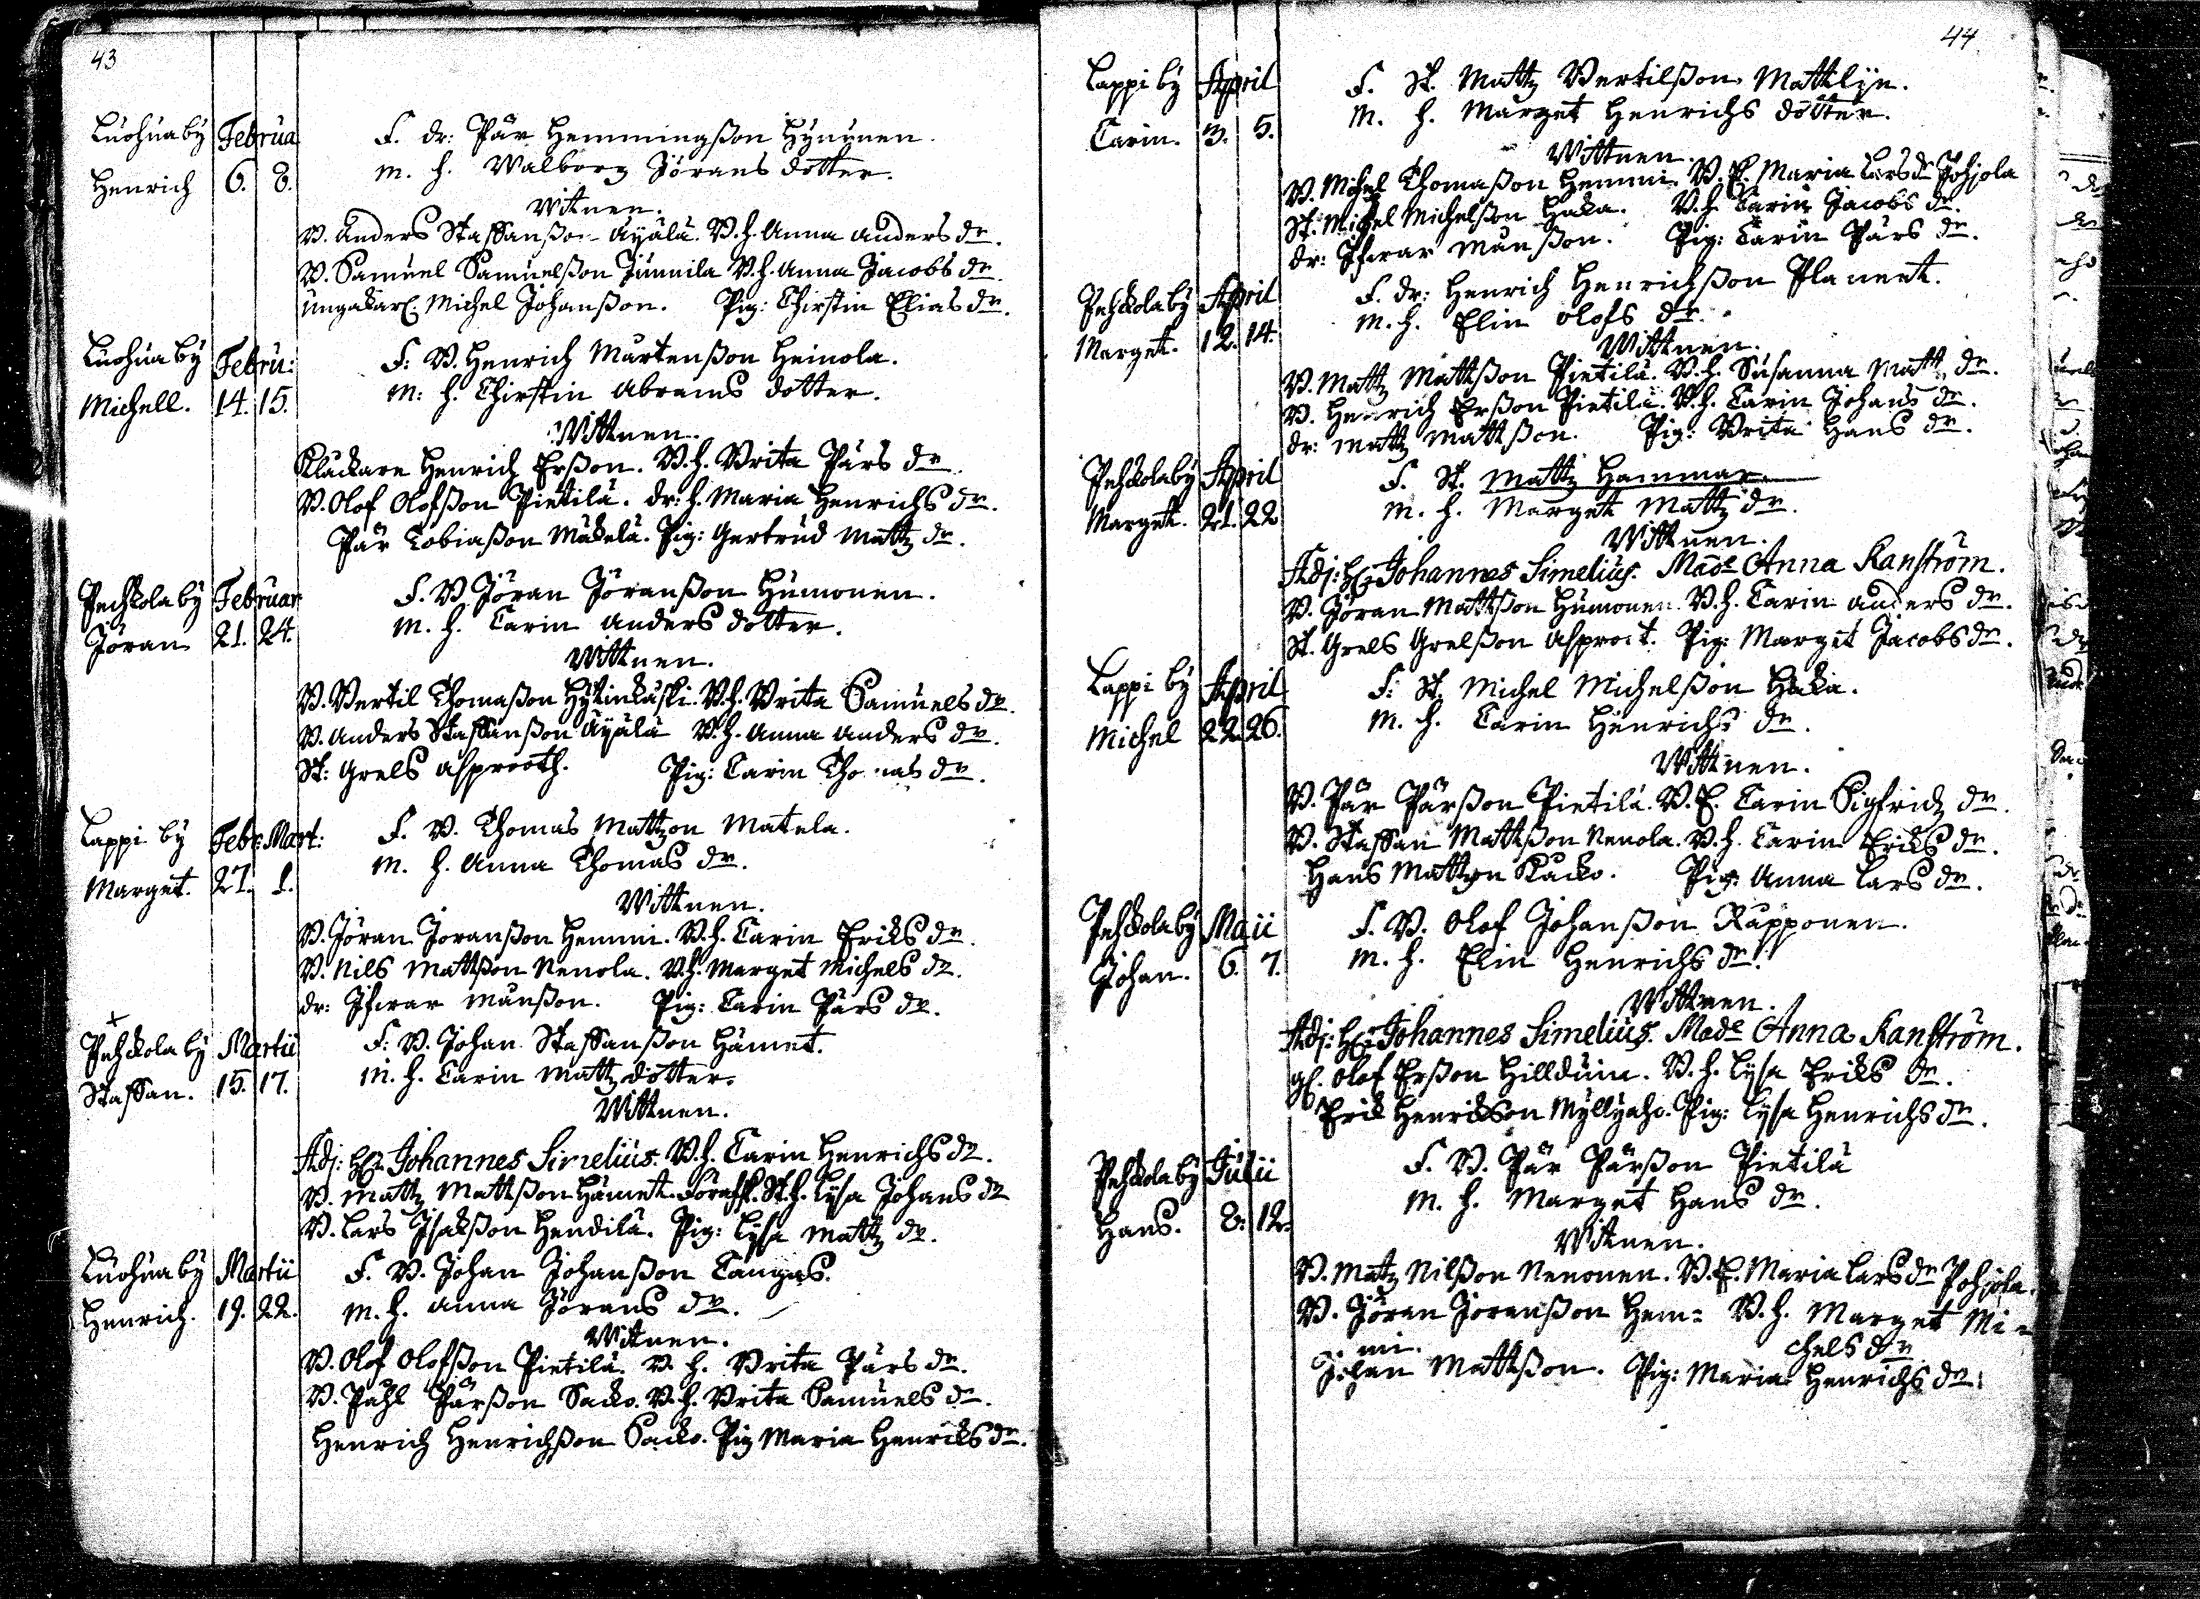 43
Luohua by Februa F. dr: Pär Hemmingßon Hynynen.
Henrich 6. 8. M. h. Walborg Jörans dotter.
Wittnen.
B. Anders Staffanßon Äyälä. B. h. Anna Anders dr.
B. Samuel Samuelßon Junnila B. h. Anna Jacobs dr.
Ungakarl. Michel Johanßon. Pig: Chirstin Elias dr.
Luohua by Febru: F: B. Henrich Mårtenßon Heinola.
Michell. 14. 15. M: h. Chirstin Abrams dotter.
Wittnen.
Klåckare Henrich Erßon. B. h. Brita Pärs dr.
B. Olof Olofßon Pietilä. dr: h. Maria Henrichs dr.
Pär Tobiaßon Mäkelä. Pig: Gertrud Mattz dr.
Pehkola by Februar F. B Jöran Jöranßon Humonen.
Jöran 21. 24. M. h. Carin Anders dotter.
Wittnen.
B. Bertil Thomaßon Hyvinkäski. B. h. Brita Samuels dr.
B. Anders Staffanßon Äyälä B. h. Anna Anders dr.
St: Grels Asprooth. Pig: Carin Thomas dr.
Lappi by Febr: Mart: F. B. Thomas Mattzon Matela.
Marget. 27. 1. M. h. Anna Thomas dr.
Wittnen.
B. Jöran Joranßon Hemmi. B. h. Carin Eriks dr.
B. Nils Mattßon Nenola. B. h. Marget Michels dr.
dr: Ifwar Månßon. Pig: Carin Pärs dr.
+
Pehkola by Martii F: B. Johan Staffanßon Hämet.
Staffan. 15. 17. M. h. Carin Mattz dotter.
Wittnen.
Adj: Hr Johannes Simelius. B. h. Carin Henrichs dr.
B. Mattz Mattßon Hämet. St. h. Lysa Johans dr
B. Lars Isakßon Hendilä. Pig: Lysa Mattz dr.
Luohua by Martii F. B. Johan Johanßon Tangas.
Henrich. 19. 22. M. h. Anna Jörans dr.
Wittnen.
B. Olof Olofßon Pietilä. B. h. Brita Pärs dr.
B. Påhl Pärßon Sacko. B. h. Brita Samuels dr.
Henrich Henrichßon Sacko. Pig Maria Henriks dr.
44
Lappi by April F. St. Mattz Bertilßon Mattlin.
Carin. 3. 5. M. h. Marget Henrichs dotter.
Wittnen.
B. Michel Thomaßon Hemmi. B. E. Maria Lars dr Pohjola
St. Michel Michelßon Haka. B. h. Carin Jacobs dr.
dr: Ifwar Månßon. Pig: Carin Pärs dr.
Pehkola by April F. dr: Henrich Henrichßon Planeet.
Marget. 12. 14. M. h. Elin Olofs dr.
Wittnen.
B. Mattz Mattßon Pietilä. B. h. Susanna Matts dr.
B. Henrich Erßon Pietilä. B. h. Carin Johans dr.
dr: Mattz Mattßon. Pig: Brita Hans dr.
Pehkola by April F. St. Mattz Hammar
Marget. 21. 22 M. h. Marget Mattz dr.
Wittnen.
Adj: Hr Johannes Simelius. Made Anna Kanström.
B. Jöran Mattßon Humonen. B. h. Carin Anders dr.
St. Grels Grelßon Asproot. Pig: Marget Jacobs dr.
Lappi by April F: St. Michel Michelßon Haka.
Michel 22. 26. M. h. Carin Hinrichs dr.
Wittnen.
B. Pär Pärßon Pietilä. B. E. Carin Sigfridz dr.
B. Staffan Mattßon Nenola. B. h. Carin Eriks dr.
Hans Mattzon Packo. Pig: Anna Lars dr.
Pehkola by Maii F. B. Olof Johanßon Rapponen.
Johan. 6. 7. M. h. Elin Henrichs dr.
Wittnen.
Adj: Hr Johannes Simelius. Made Anna Kanström.
gl. Olof Erßon Hilldein. B. h. Lysa Eriks dr.
Erik Henrikson Myllyaho. Pig: Lysa Henrichs dr.
Pehkola by Julii F. B. Pär Pärßon Pietilä
Hans. 8. 12. M. h. Marget Hans dr.
Wittnen.
B. Matz Nilßon Nenonen. B. E. Maria Lars dr Pohjola.
B. Jöran Joranßon Hem= B. h. Marget Mi=
mi. chels dr
Johan Mattßon. Pig: Maria Henrichs dr: